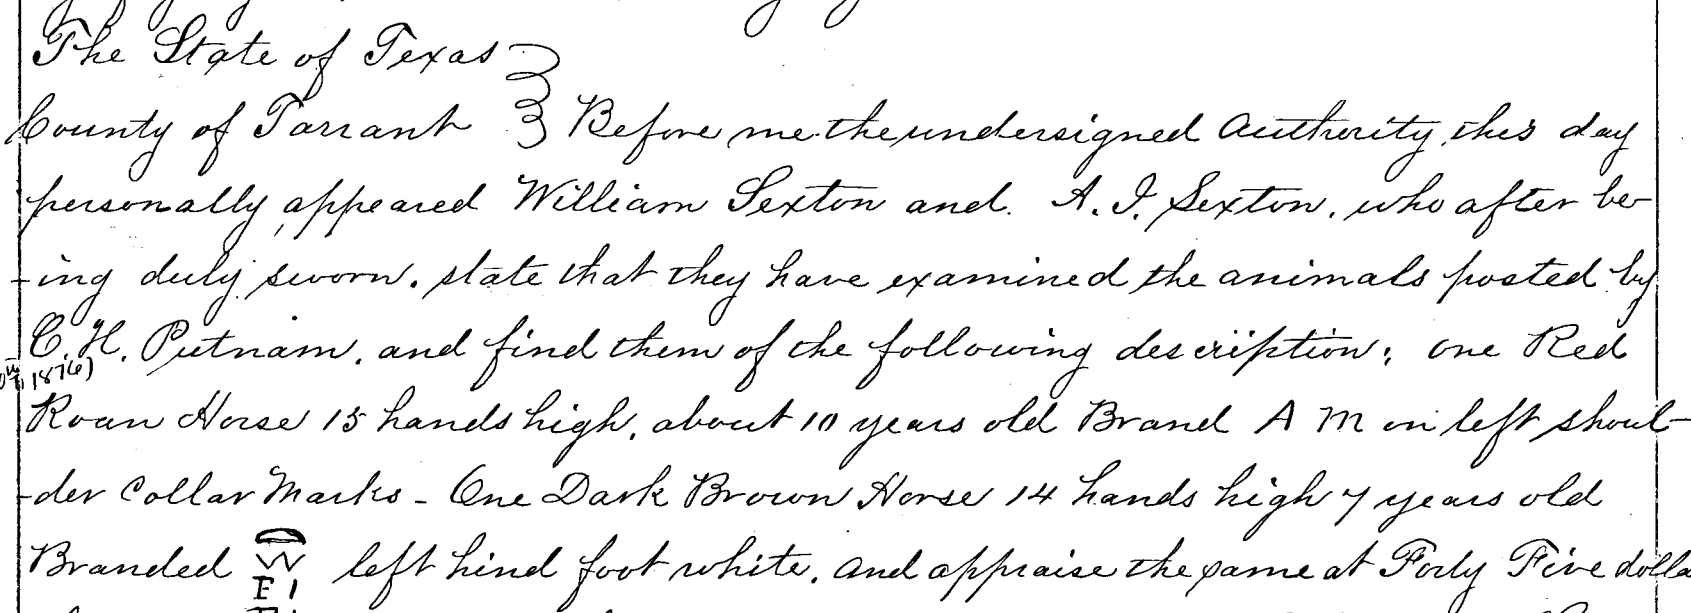 The State of Texas
County of Tarrant } Before me the undersigned Authority, this day
personally appeared William Sexton and A. J. Sexton, who after be-
-ing duly sworn. state that they have examined the animals posted by
C. H. Putnam, and find them of the following description; one Red
1876)
Roan Horse 15 hands high, about 10 years old Brand A M on left shoul-
-der Collar Marks - One Dark Brown Horse 14 hands high 7 years old
Branded W left hind foot white, and appraise the same at Forty Five dolla
E I